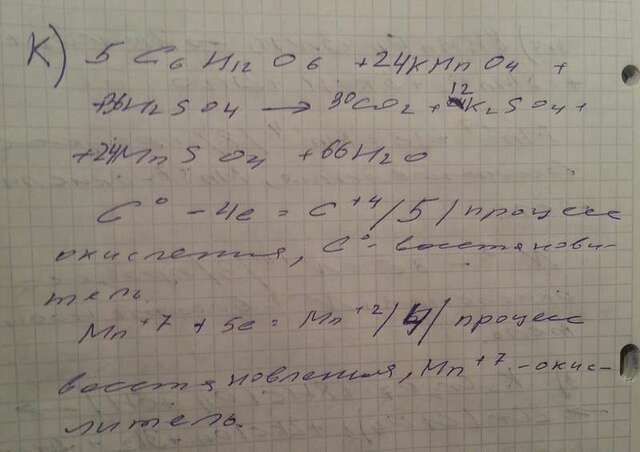 К) 5 C6 H12 O6 + 24KMnO4 +
+ 36H2SO4 → 30CO2 + 12K2SO4 +
+ 24MnSO4 + 66H2O
C⁰ - 4e = C⁺⁴ / 5 / процесс
окисления, C⁰ - восстанови-
тель.
Mn⁺⁷ + 5e = Mn⁺² / 4 / процесс
восстановления, Mn⁺⁷ - окис-
литель.